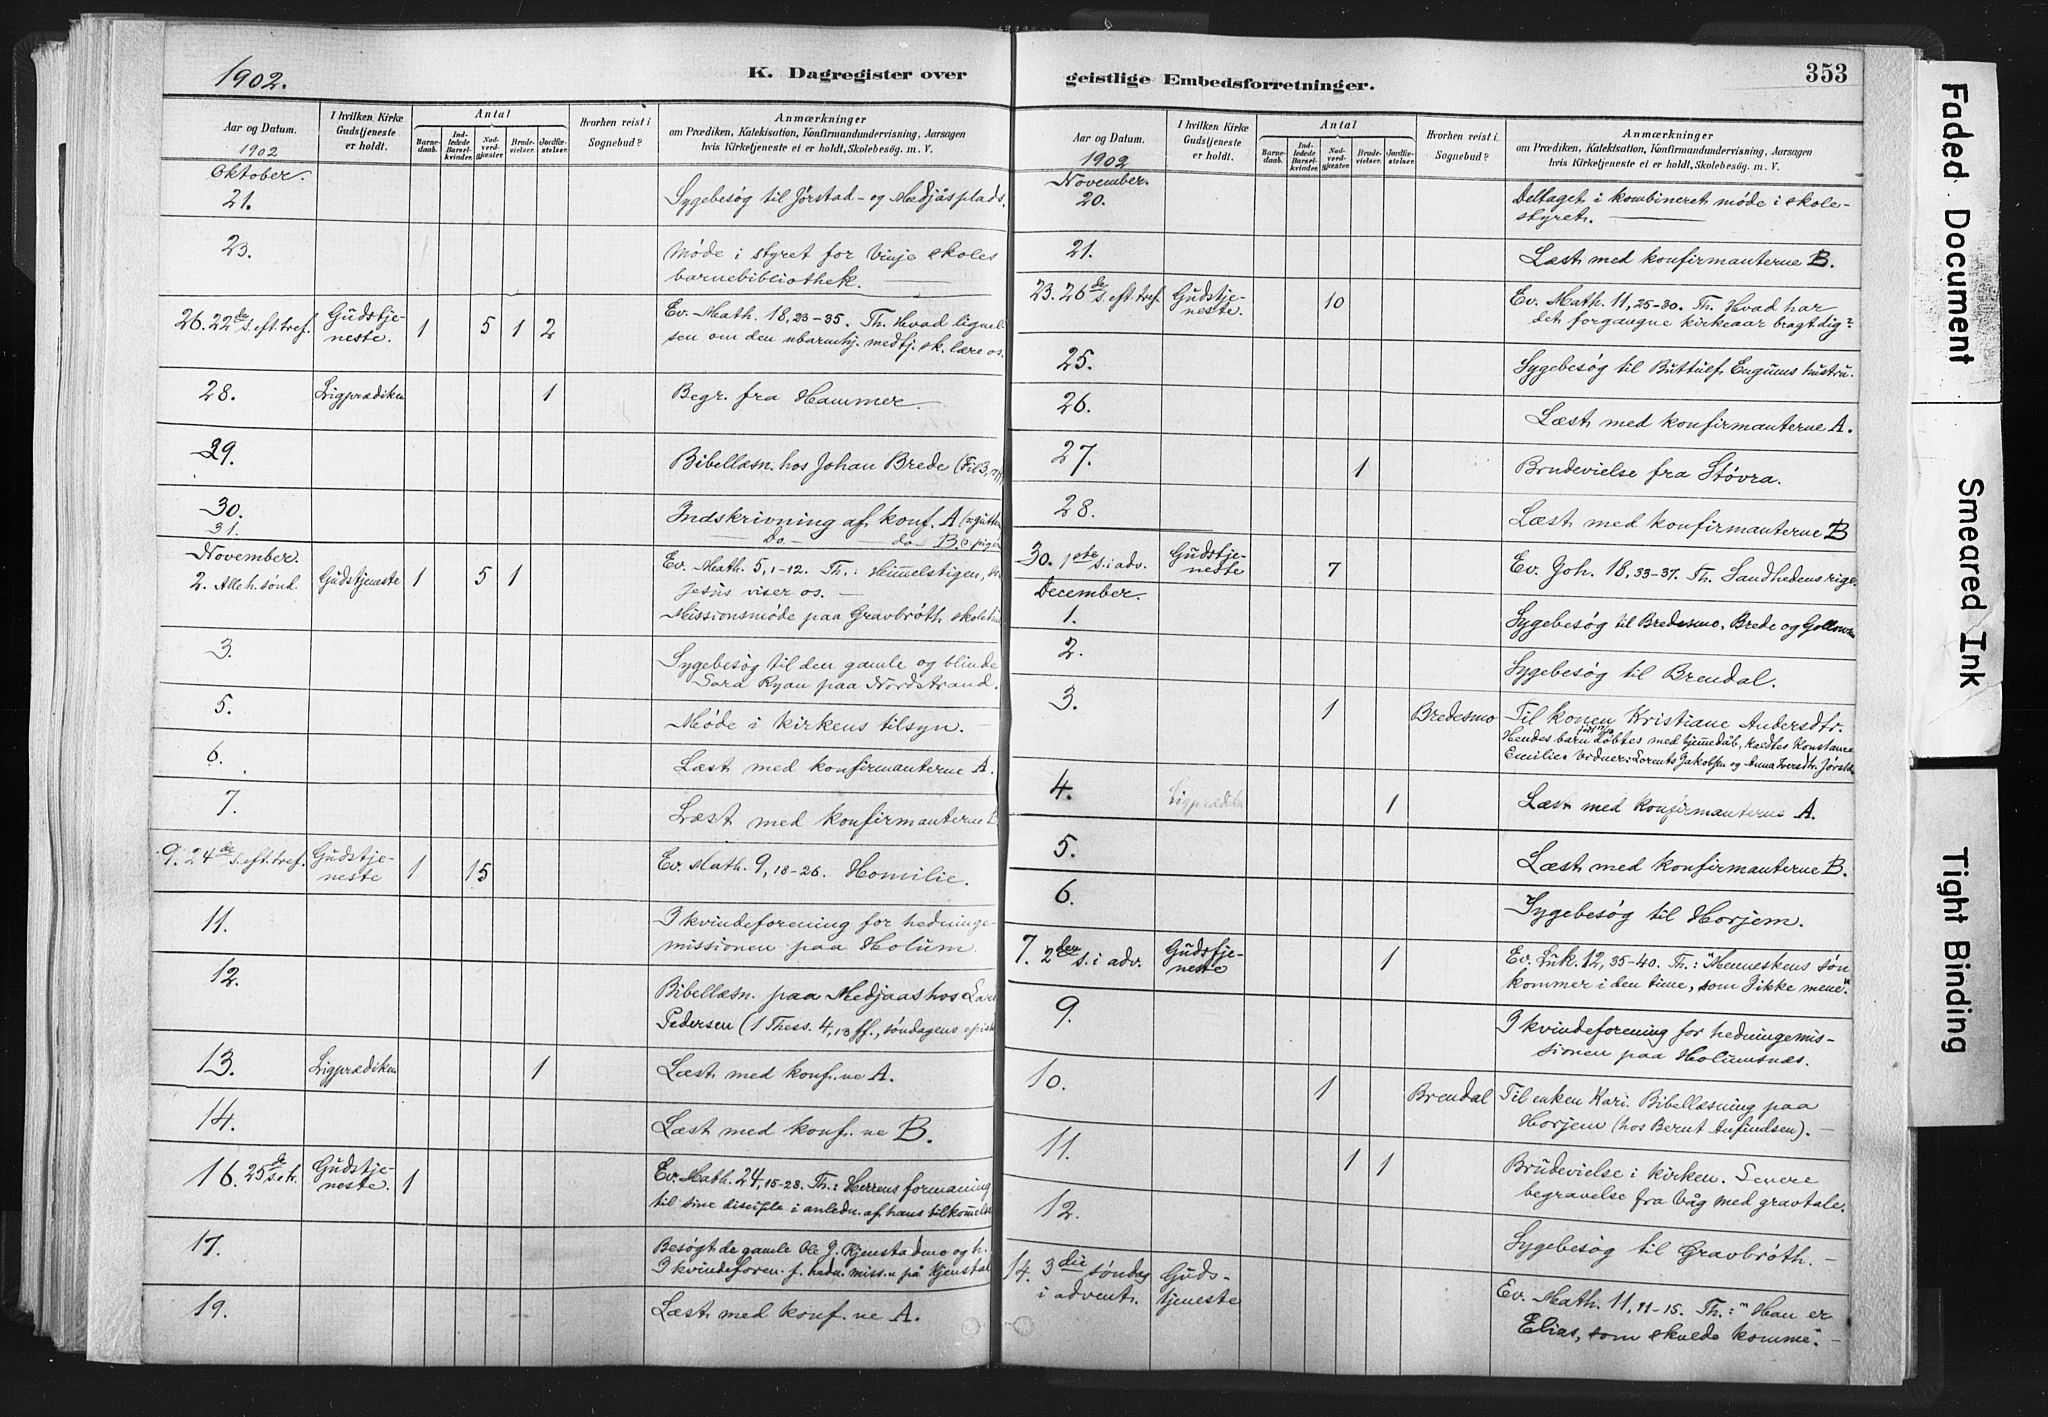 1902.
K. Dagregister over
Aar og Datum.
I hvilken Kirke Gudstjeneste er holdt.
Antal
Barnedaab.
Indledede Barselkvinder.
Nadverdgjæster
Brudevielser.
Jordfæstelser.
Hvorhen reist i Sognebud?
Anmærkninger
om Prædiken, Katekisation, Konfirmandundervisning, Aarsagen
hvis Kirketjeneste ei er holdt, Skolebesøg. m. V.
1902
Oktober.
21. Sygebesøg til Jørstad- og Medjås plads.
23. Møde i styret for Vinje skoles
barnebibliothek.
26. 22de s. eft. tref. Gudstje- 1 5 1 2 Ev. Math. 18, 23-35. Th. Hvad lignel-
neste. sen om den ubarmhj. medtj. sk. lære os.
28. Ligprædiken 1 Begr. fra Hammer.
29. Bibellæsn. hos Johan Brede (Fil 3,
30. Indskrivning af konf. A
31. Do. do B
November.
2. Alle h. sønd. Gudstjeneste 1 5 1 Ev. Math. 5, 1-12. Th.: Himmelstigen,
Jesus viser os.
Missionsmøde paa Gravbrøth
3. Sygebesøg til den gamle og blinde
Sara Ryan paa Nordstrand.
5. Møde i kirkens tilsyn.
6. Læst med konfirmanterne A.
7. Læst med konfirmanterne
9. 24de s. eft. tref. Gudstje- 1 15 Ev. Math. 9, 18-26. Homilie.
neste
11. I kvindeforening for hedninge-
missionen paa Holum.
12. Bibellæsn. paa Medjaas hos
Pedersen (1 Thess. 4, 13 ff., søndagens
13. Ligprædiken 1 Læst med konf.ne A.
14. Læst med konf.ne B.
16. 25de Gudstje- 1 Ev. Math. 24, 15-28. Th.: Herrens formaning
neste. til sine disciple i anledn. af hans tilkomme
17. Besøgt de gamle Ole J. Kjenstadmo og h.
I kvindeforen. f. hedn. miss.n på Kjenstad
19. Læst med konf.ne A.
geistlige Embedsforretninger.
353
Aar og Datum.
I hvilken Kirke Gudstjeneste er holdt.
Antal
Barnedaab.
Indledede Barselkvinder.
Nadverdgjæster
Brudevielser.
Jordfæstelser.
Hvorhen reist i Sognebud?
Anmærkninger
om Prædiken, Katekisation, Konfirmandundervisning, Aarsagen
hvis Kirketjeneste ei er holdt, Skolebesøg. m. V.
1902
November.
20. Deltaget i kombineret møde i skole-
styret.
21. Læst med konfirmanterne B.
23. 26de s. eft. tref. Gudstje- 10 Ev. Math. 11, 25-30. Th. Hvad har
neste. det forgangne kirkeaar bragt dig?
25. Sygebesøg til Buttulf Engums hustru.
26. Læst med konfirmanterne A.
27. 1 Brudevielse fra Støvra.
28. Læst med konfirmanterne B
30. 1ste s. i adv. Gudstje- 7 Ev. Joh. 18, 33-37. Th. Sandhedens rige.
neste
December.
1. Sygebesøg til Bredesmo, Brede og
2. Sygebesøg til Brendal.
3. 1 Bredesmo Til konen Kristiane Andersdtr.
Hendes barn døbtes med hjemmedåb, kaldtes Konstance
Emilie. Vidner: Lorents Jakobsen og Anna Iversdtr.
4. Ligprædiken 1 Læst med konfirmanterne A.
5. Læst med konfirmanterne B.
6. Sygebesøg til Horjem.
7. 2den s. i adv. Gudstje- 1 Ev. Luk. 12, 35-40. Th.: "Menneskens søn
neste kommer i den time, som I ikke mene."
9. I kvindeforening for hedningemis-
sionen paa Holumsnæs.
10. 1 Brendal Til enken Kari. Bibellæsning paa
Horjem (hos Bernt Anfindsen).
11. 1 1 Brudevielse i kirken. Senere
begravelse fra Våg med gravtale.
12. Sygebesøg til Gravbrøth.
14. 3die søndag Guds- Ev. Math. 11, 11-15. Th.: "Han er
i advent. tjeneste Elias, som skulde komme".
Faded Document
Smeared Ink
Tight Binding